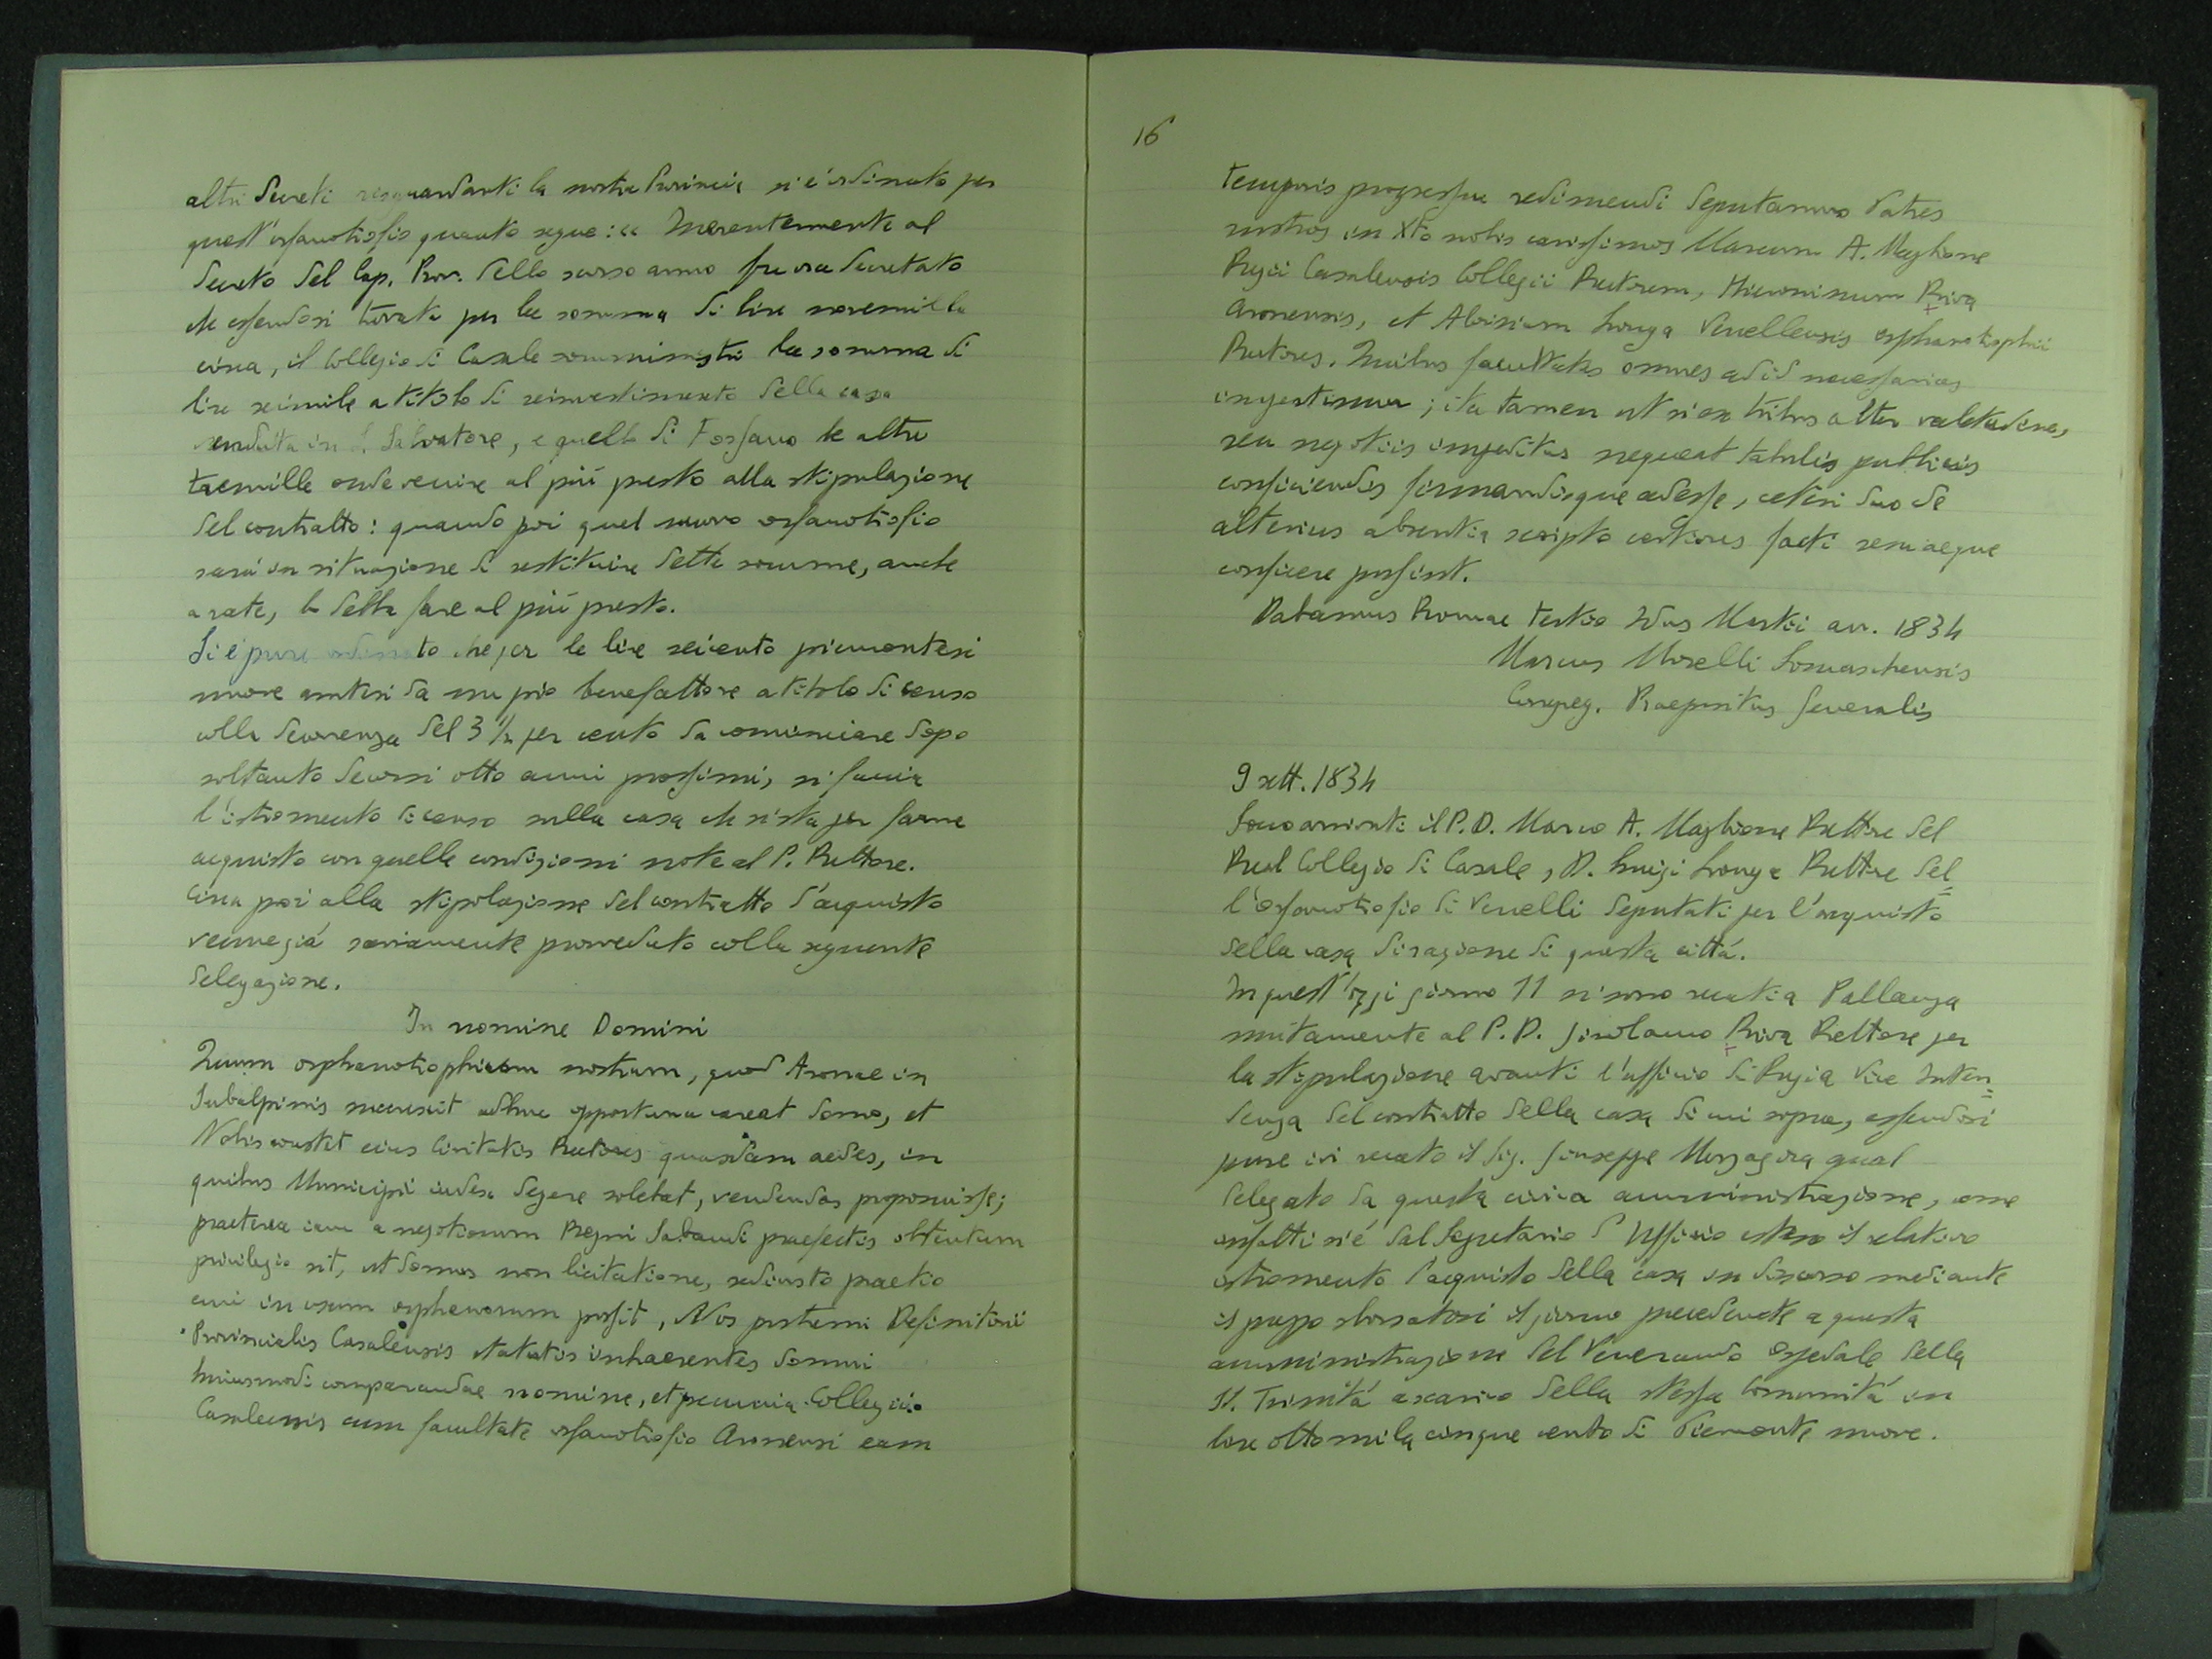 altri decreti risguardanti la nostra Provincia si è ordinato per
quest'orfanotrofio quanto segue: « Inerentemente al
decreto del Cap. Prov. dello scorso anno fu ora decretato
che essendosi trovata per la somma di lire novemilla
circa, il Collegio di Casale somministri la somma di
lire seimila a titolo di reinvestimento della casa
venduta in S. Salvatore, e quello di Fossano le altre
tremille onde venire al più presto alla stipulazione
del contratto: quando poi quel nuovo orfanotrofio
sarà in situazione di restituire dette somme, anche
a rate, lo debba fare al più presto.
Si è pure ordinato che per le lire seicento piemontesi
nuove da un pio benefattore a titolo di censo
colla decorrenza del 3 1/2 per cento da cominciare dopo
soltanto decorsi otto anni prossimi, si faccia
l'istromento di censo sulla casa che si sta per farne
acquisto con quelle condizioni note al P. Rettore.
Circa poi alla stipolazione del contratto d'acquisto
venne già saviamente proveduto colla seguente
delegazione.
In nomine Domini
Quum orphanotrophium nostrum, quod Aronae in
Subalpinis adhuc opportuna careat domo, et
Nobis constet eius Civitatis Rectores quasdam aedes, in
quibus Municipii iudex degere solebat, vendendas proposuisse;
praeterea cum a negotiorum Regni Sabaudi praefectis obtentum
privilegio sit, ut domus non licitatione, sed iusto praetio
emi in usum orphanorum possit, Nos postremi Definitorii
Provincialis Casalensis statutis inhaerentes domui
huiusmodi comparandae nomine, et pecunia Collegii
Casalensis cum facultate orfanotrofio Aronensi eam
16
temporis progressu redimendi deputamus Patres
nostros in Xto nobis carissimos Marcum A. Maglione
Regii Casalensis Collegii Rectorem, Hieronimum Riva
Aronensis, et Aloisium Longa Vercellensis orphanotrophii
Rectores. Quibus facultates omnes ad id necessarias
ingestimur; ita tamen ut si ex tribus alter valetudine,
seu negotiis impeditus nequeat tabulis publicis
conficiendis firmandisque adesse, ceteri duo de
alterius absentia scripto certiores facti rem aeque
conficere possint.
Dabamus Romae tertio Idus Martii an. 1834
Marcus Morelli Somaschensis
Congreg. Praepositus Generalis
9 sett. 1834
Sono arrivati il P. D. Marco A. Maglione Rettore del
Real Collegio di Casale, D. Luigi Longa Rettore del=
l'orfanotrofio di Vercelli deputati per l'acquisto
della casa di ragione di questa città.
In quest'oggi giorno 11 si sono recati a Pallanza
unitamente al P. D. Girolamo Riva Rettore per
la stipulazione avanti l'ufficio di Regia Vice Inten=
denza del contratto della casa di cui sopra, essendosi
pure ivi recato il Sig. Giuseppe Merzagora qual
delegato da questa civica amministrazione, come
infatti si è dal Segretario d'Ufficio esteso il relativo
istromento d'acquisto della casa in discorso mediante
il prezzo sborsatosi il giorno precedente a questa
amministrazione del Venerando Ospedale della
SS. Trinità a scarico della stessa Comunità in
lire ottomila cinque cento di Piemonte nuove.